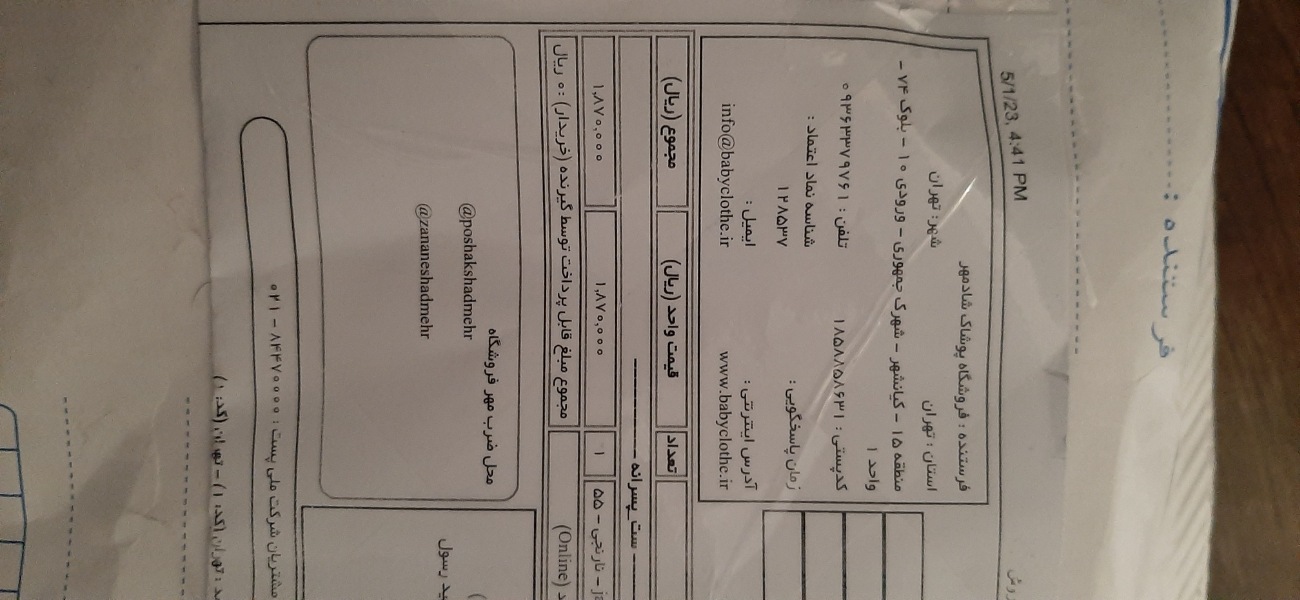 فرستنده :
5/1/23, 4:41 PM
فرستنده : فروشگاه پوشاک شادمهر
استان : تهران شهر: تهران
منطقه ۱۵ - کیانشهر - شهرک جمهوری - ورودی ۱۰ - بلوک ۷۴ -
واحد ۱
کدپستی : ۱۸۵۸۸۱۵۸۶۳۱ تلفن : ۰۹۳۶۳۳۷۹۷۶۱
زمان پاسخگویی : شناسه نماد اعتماد :
۱۲۸۵۳۷
آدرس اینترنتی : ایمیل :
www.babyclothe.ir info@babyclothe.ir
تعداد قیمت واحد (ریال) مجموع (ریال)
ست پسرانه
۵۵ - نارنجی - ۱ ۱,۸۷۰,۰۰۰ ۱,۸۷۰,۰۰۰
(Online) مجموع مبلغ قابل پرداخت توسط گیرنده (خریدار) : ۰ ریال
محل ضرب مهر فروشگاه
@poshakshadmehr
@zananeshadmehr
رسول
مشتریان شرکت ملی پست : ۰۲۱ - ۸۴۴۷۰۰۰۰
تهران (کد: ۱) - تهران (کد: ۱)